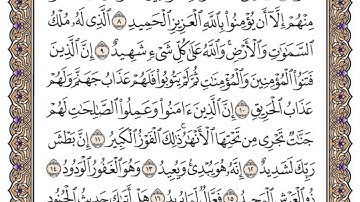 مِنْهُمْ إِلَّآ أَن يُؤْمِنُوا۟ بِٱللَّهِ ٱلْعَزِيزِ ٱلْحَمِيدِ ٨ ٱلَّذِى لَهُۥ مُلْكُ
ٱلسَّمَٰوَٰتِ وَٱلْأَرْضِ وَٱللَّهُ عَلَىٰ كُلِّ شَىْءٍ شَهِيدٌ ٩ إِنَّ ٱلَّذِينَ
فَتَنُوا۟ ٱلْمُؤْمِنِينَ وَٱلْمُؤْمِنَٰتِ ثُمَّ لَمْ يَتُوبُوا۟ فَلَهُمْ عَذَابُ جَهَنَّمَ وَلَهُمْ
عَذَابُ ٱلْحَرِيقِ ١٠ إِنَّ ٱلَّذِينَ ءَامَنُوا۟ وَعَمِلُوا۟ ٱلصَّٰلِحَٰتِ لَهُمْ
جَنَّٰتٌ تَجْرِى مِن تَحْتِهَا ٱلْأَنْهَٰرُ ذَٰلِكَ ٱلْفَوْزُ ٱلْكَبِيرُ ١١ إِنَّ بَطْشَ
رَبِّكَ لَشَدِيدٌ ١٢ إِنَّهُۥ هُوَ يُبْدِئُ وَيُعِيدُ ١٣ وَهُوَ ٱلْغَفُورُ ٱلْوَدُودُ ١٤
ذُو ٱلْعَرْشِ ٱلْمَجِيدُ ١٥ فَعَّالٌ لِّمَا يُرِيدُ ١٦ هَلْ أَتَىٰكَ حَدِيثُ ٱلْجُنُودِ